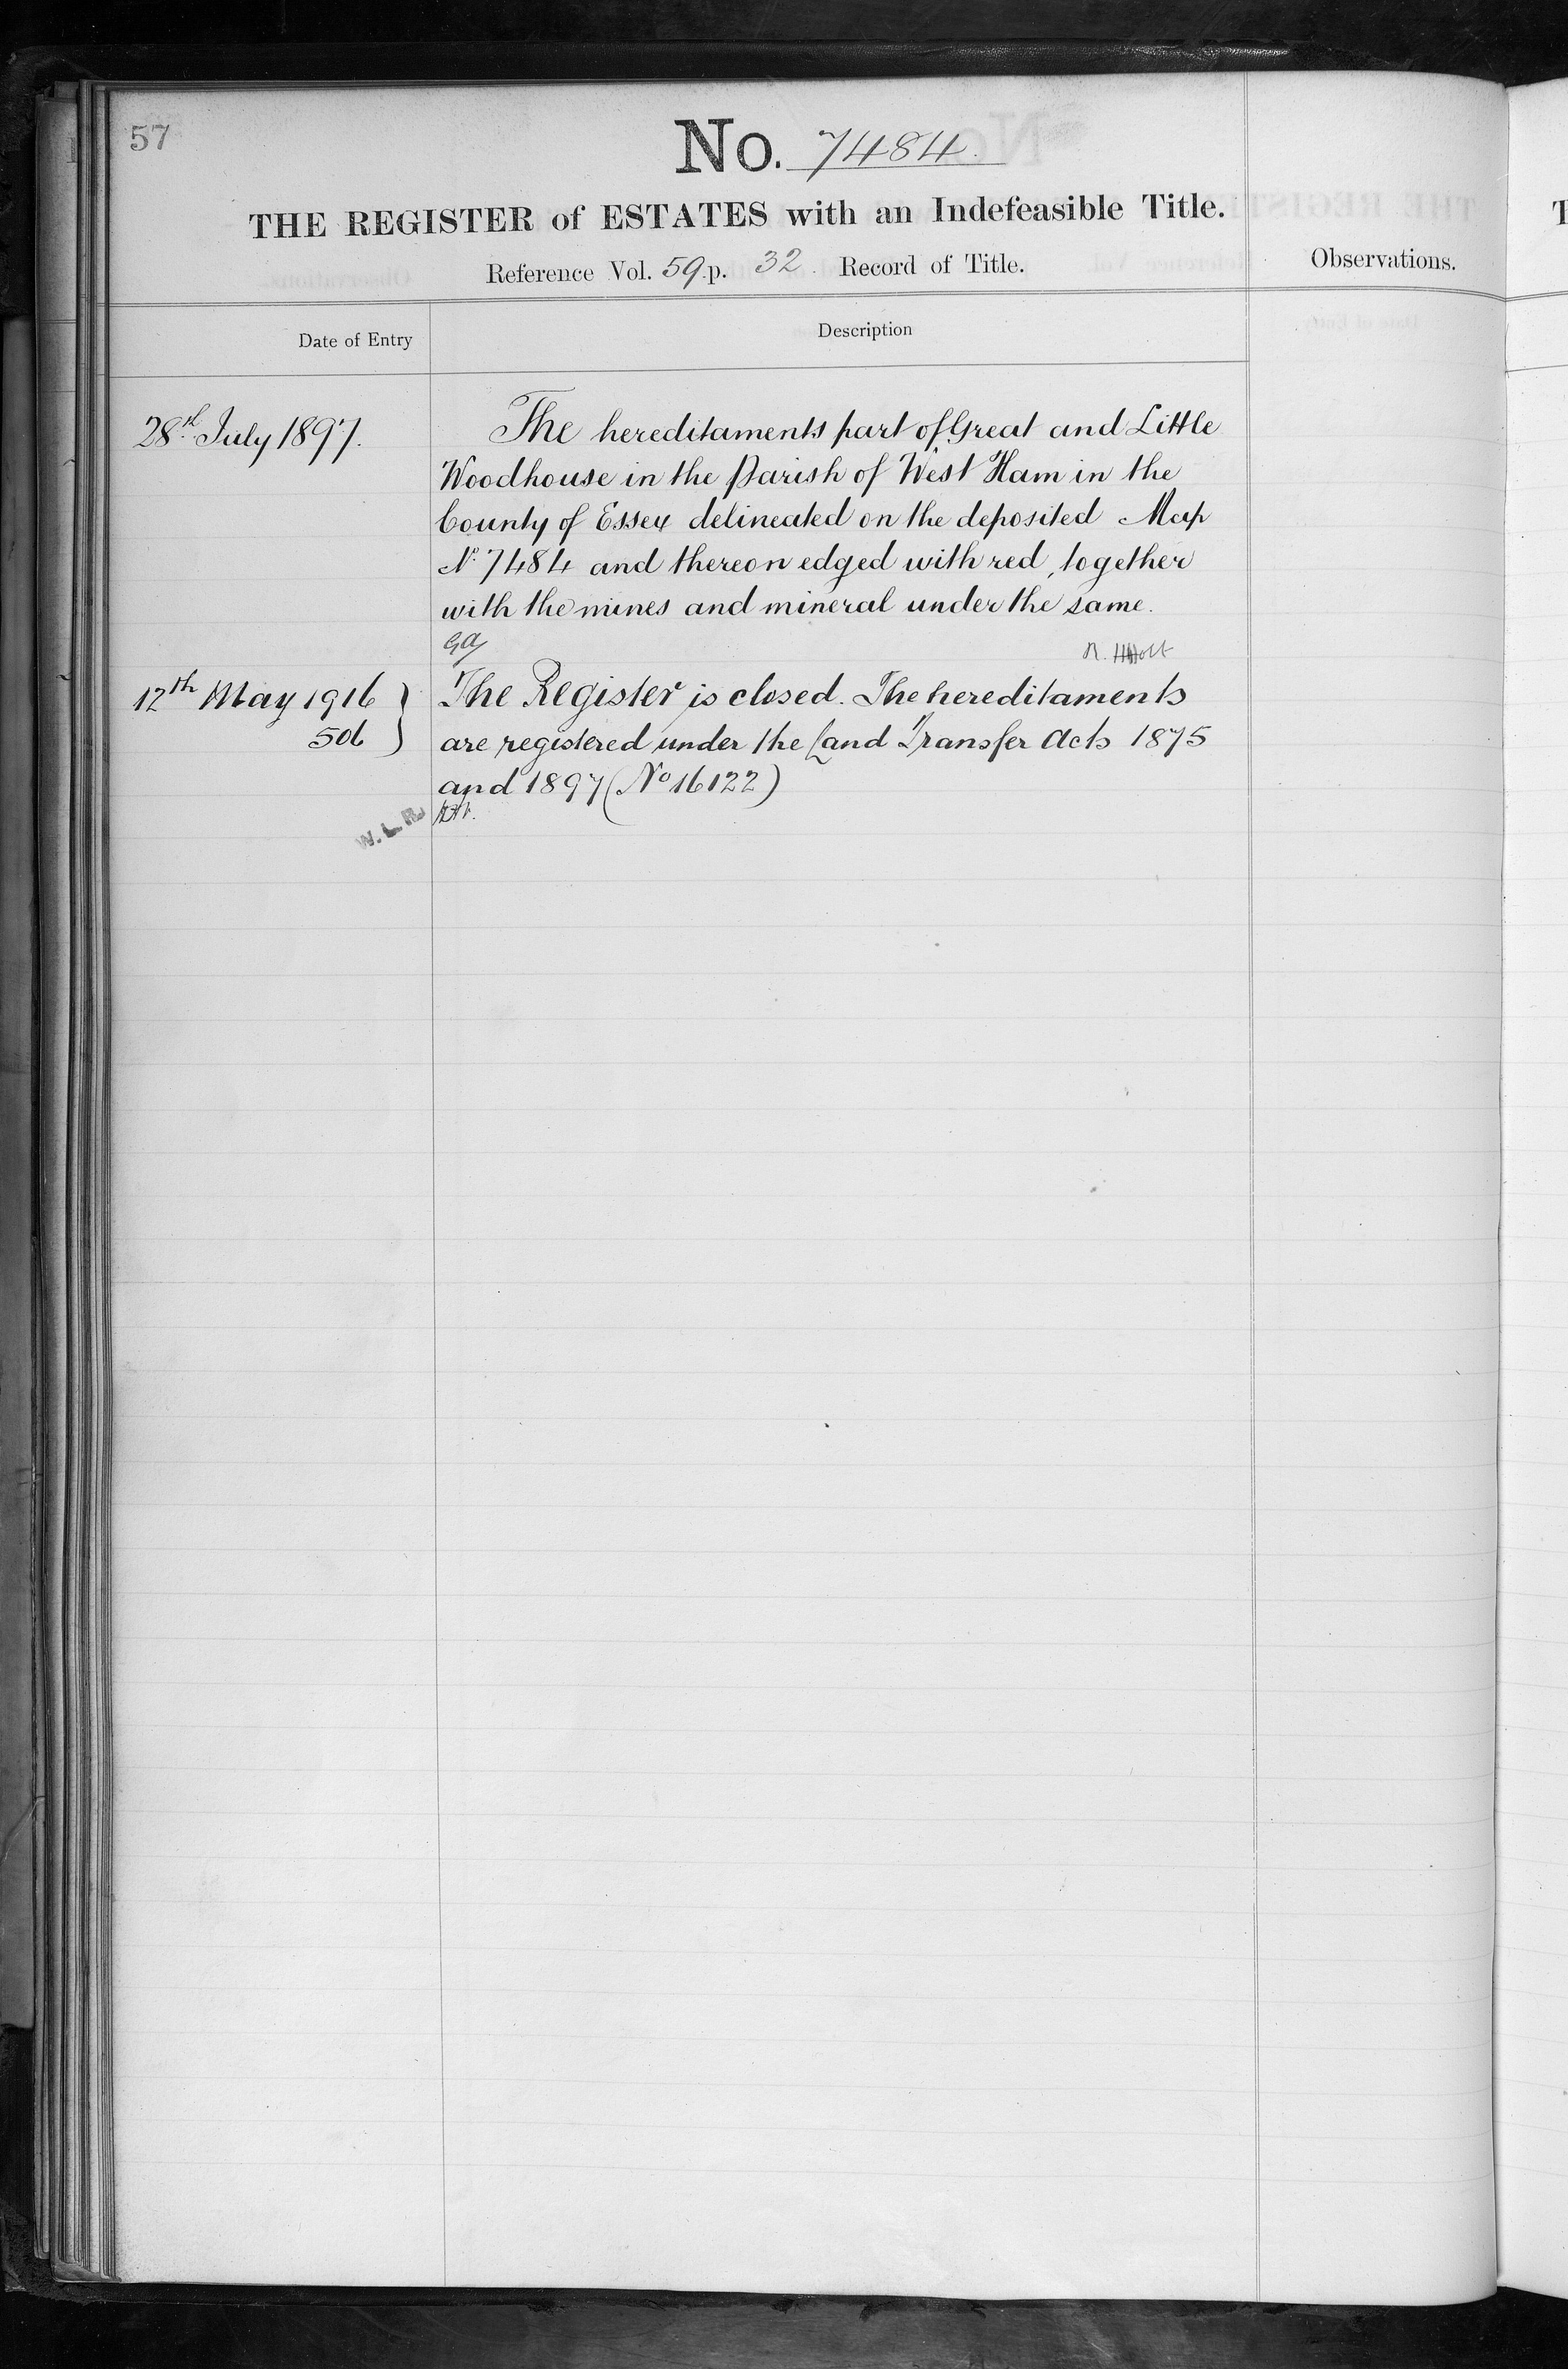 57
No. 7484.
THE REGISTER of ESTATES with an Indefeasible Title.
Reference Vol. 59.p. 32. Record of Title.
Observations.
Date of Entry
Description
28th July 1897.
The hereditaments part of Great and Little
Woodhouse in the Parish of West Ham in the
County of Essex delineated on the deposited Map
No 7484 and thereon edged with red, together
with the mines and mineral under the same.
12th May 1916
506
The Register is closed. The hereditaments
are registered under the Land Transfer Acts 1875
and 1897 (No 16122)
W.L.R.